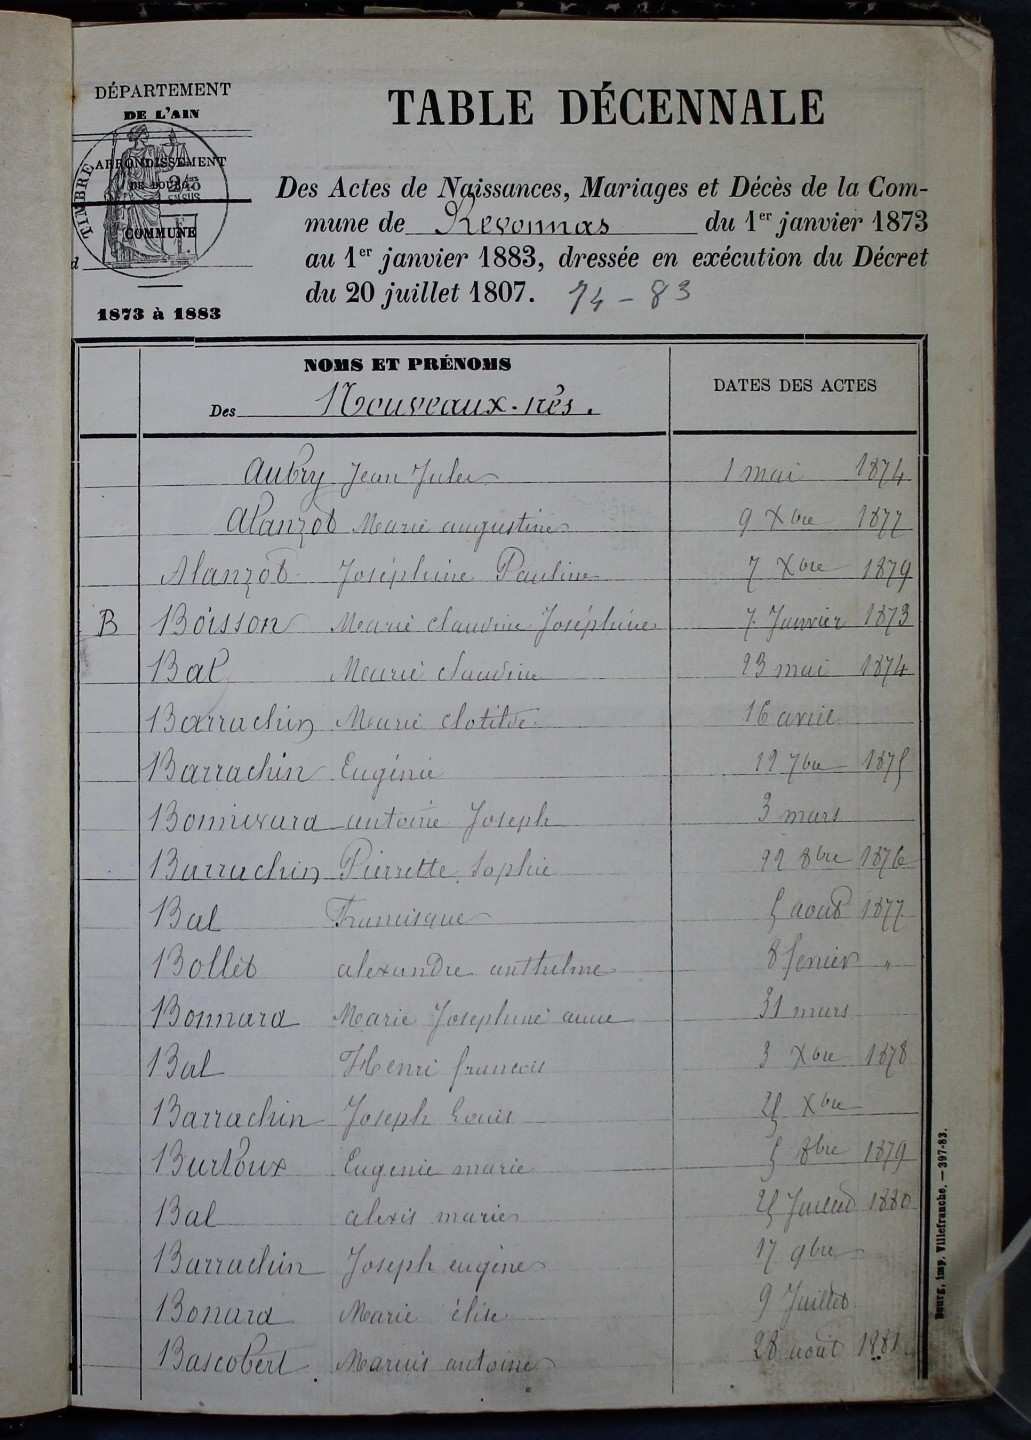 DÉPARTEMENT
DE L'AIN
ARRONDISSEMENT
DE BOURG
TIMBRE
COMMUNE
d
1873 à 1883
TABLE DÉCENNALE
Des Actes de Naissances, Mariages et Décès de la Com-
mune de Revonnas du 1er janvier 1873
au 1er janvier 1883, dressée en exécution du Décret
du 20 juillet 1807. 74-83
NOMS ET PRÉNOMS
Des Nouveaux-nés.
DATES DES ACTES
Aubry Jean Jules 1 mai 1874
Alanzot Marie augustine 9 Xbre 1877
Alanzot Joséphine Pauline 7 Xbre 1879
B Boisson Marie claudine Joséphine 7 Janvier 1873
Bal Marie claudine 23 mai 1874
Barrachin Marie clotilde 16 avril
Barrachin Eugénie 12 7bre 1875
Bonnivard antoine Joseph 3 mars
Barrachin Pierrette Sophie 22 8bre 1876
Bal Francisque 5 août 1877
Bollet alexandre anthelme 8 fevrier "
Bonnard Marie Josephine anne 31 mars
Bal Henri francois 3 Xbre 1878
Barrachin Joseph Louis 25 Xbre
Burtoux Eugenie marie 5 8bre 1879
Bal alexis marie 25 Juillet 1880
Barrachin Joseph eugène 17 9bre
Bonard Marie élise 9 Juillet
Bascobert Marius antoine 28 août 1881
Bourg, imp. Villefranche. — 397-83.